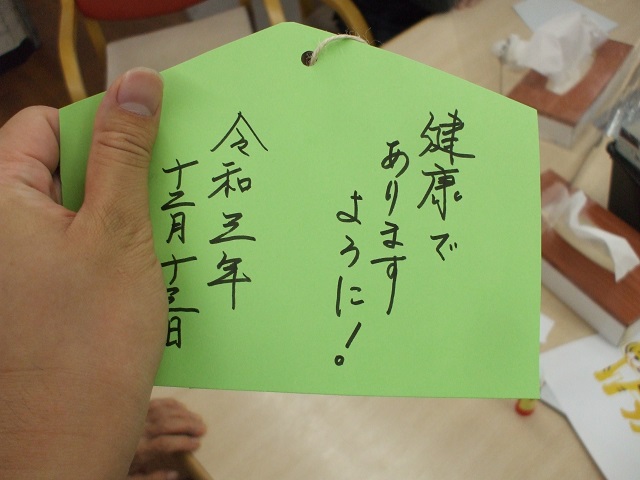 健康で
あります
ように!
令和三年
十二月十三日